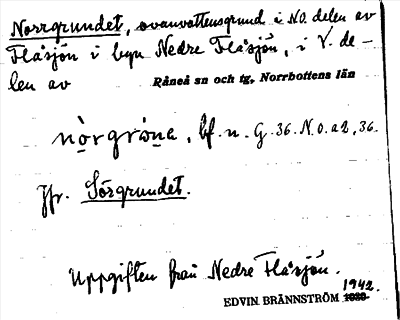 Norrgrundet, ovanvattensgrund i NO. delen av
Flåsjön i byn Nedre Flåsjön, i V. de-
len av Råneå sn och tg, Norrbottens län
nòrgròna, bf. n. G. 36. N. o. a 2, 36.
Jfr. Sörgrundet.
Uppgiften från Nedre Flåsjön.
1942.
EDVIN. BRÄNNSTRÖM 1939